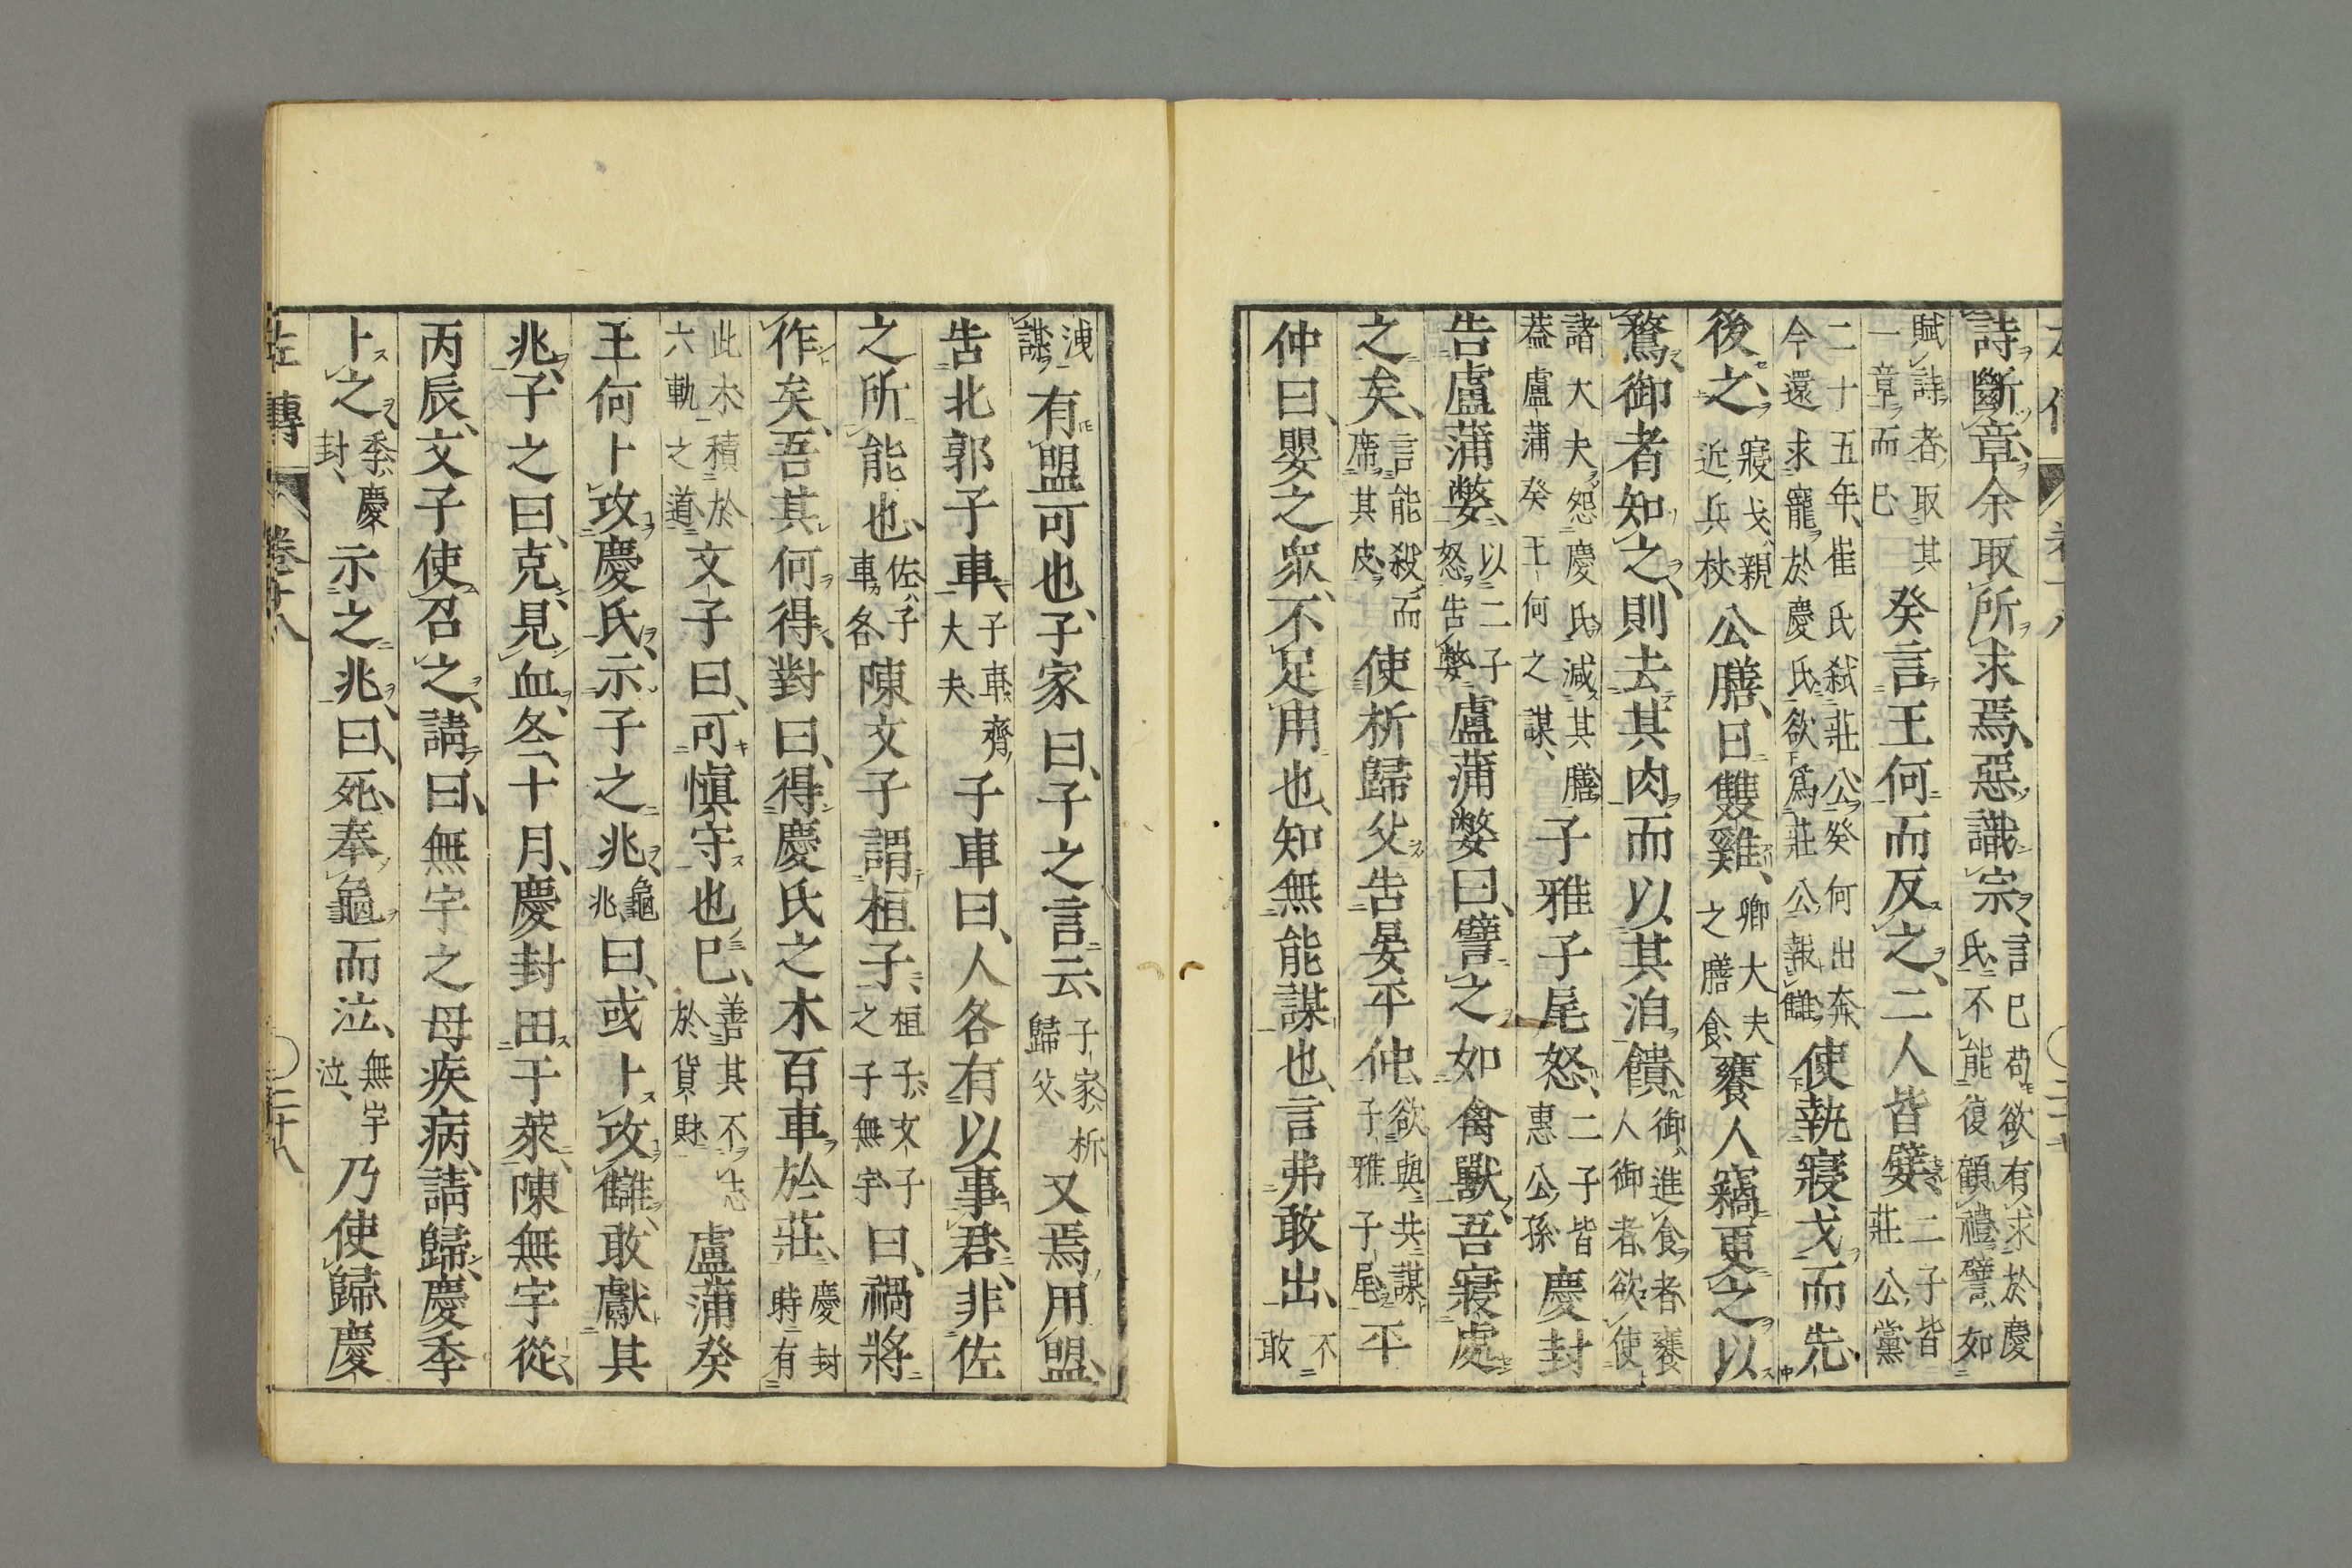 詩斷章余取所求焉惡識宗言已苟欲有求於慶氏不能復顧禮譬如
賦詩者取其一章而已癸言王何而反之二人皆嬖二子皆莊公黨
二十五年崔氏弑莊公癸何出奔今還求寵於慶氏欲爲莊公報讎使執寢戈而先
後之寢戈親近兵杖公膳日雙雞卿大夫之膳食饔人竊更之以
鶩御者知之則去其肉而以其洎饋御進食者饔人御者欲使
諸大夫怨慶氏減其膳蓋盧蒲癸王何之謀子雅子尾怒二子皆惠公孫慶封
告盧蒲嫳以二子怒告嫳盧蒲嫳曰譬之如禽獸吾寢處
之矣言能殺而席其皮使析歸父告晏平仲欲與共謀子雅子尾平
仲曰嬰之眾不足用也知無能謀也言弗敢出不敢
洩謀有盟可也子家曰子之言云子家析歸父又焉用盟
告北郭子車子車齊大夫子車曰人各有以事君非佐
之所能也佐子車各陳文子謂桓子桓子文子之子無宇曰禍將
作矣吾其何得對曰得慶氏之木百車於莊慶封時有
此木積於六軌之道文子曰可慎守也已善其不志於貨財盧蒲癸
王何卜攻慶氏示子之兆龜兆曰或卜攻讎敢獻其
兆子之曰克見血冬十月慶封田于萊陳無宇從
丙辰文子使召之請曰無宇之母疾病請歸慶季
卜之季慶封示之兆曰死奉龜而泣無宇泣乃使歸慶
左傳 卷十八 二十八